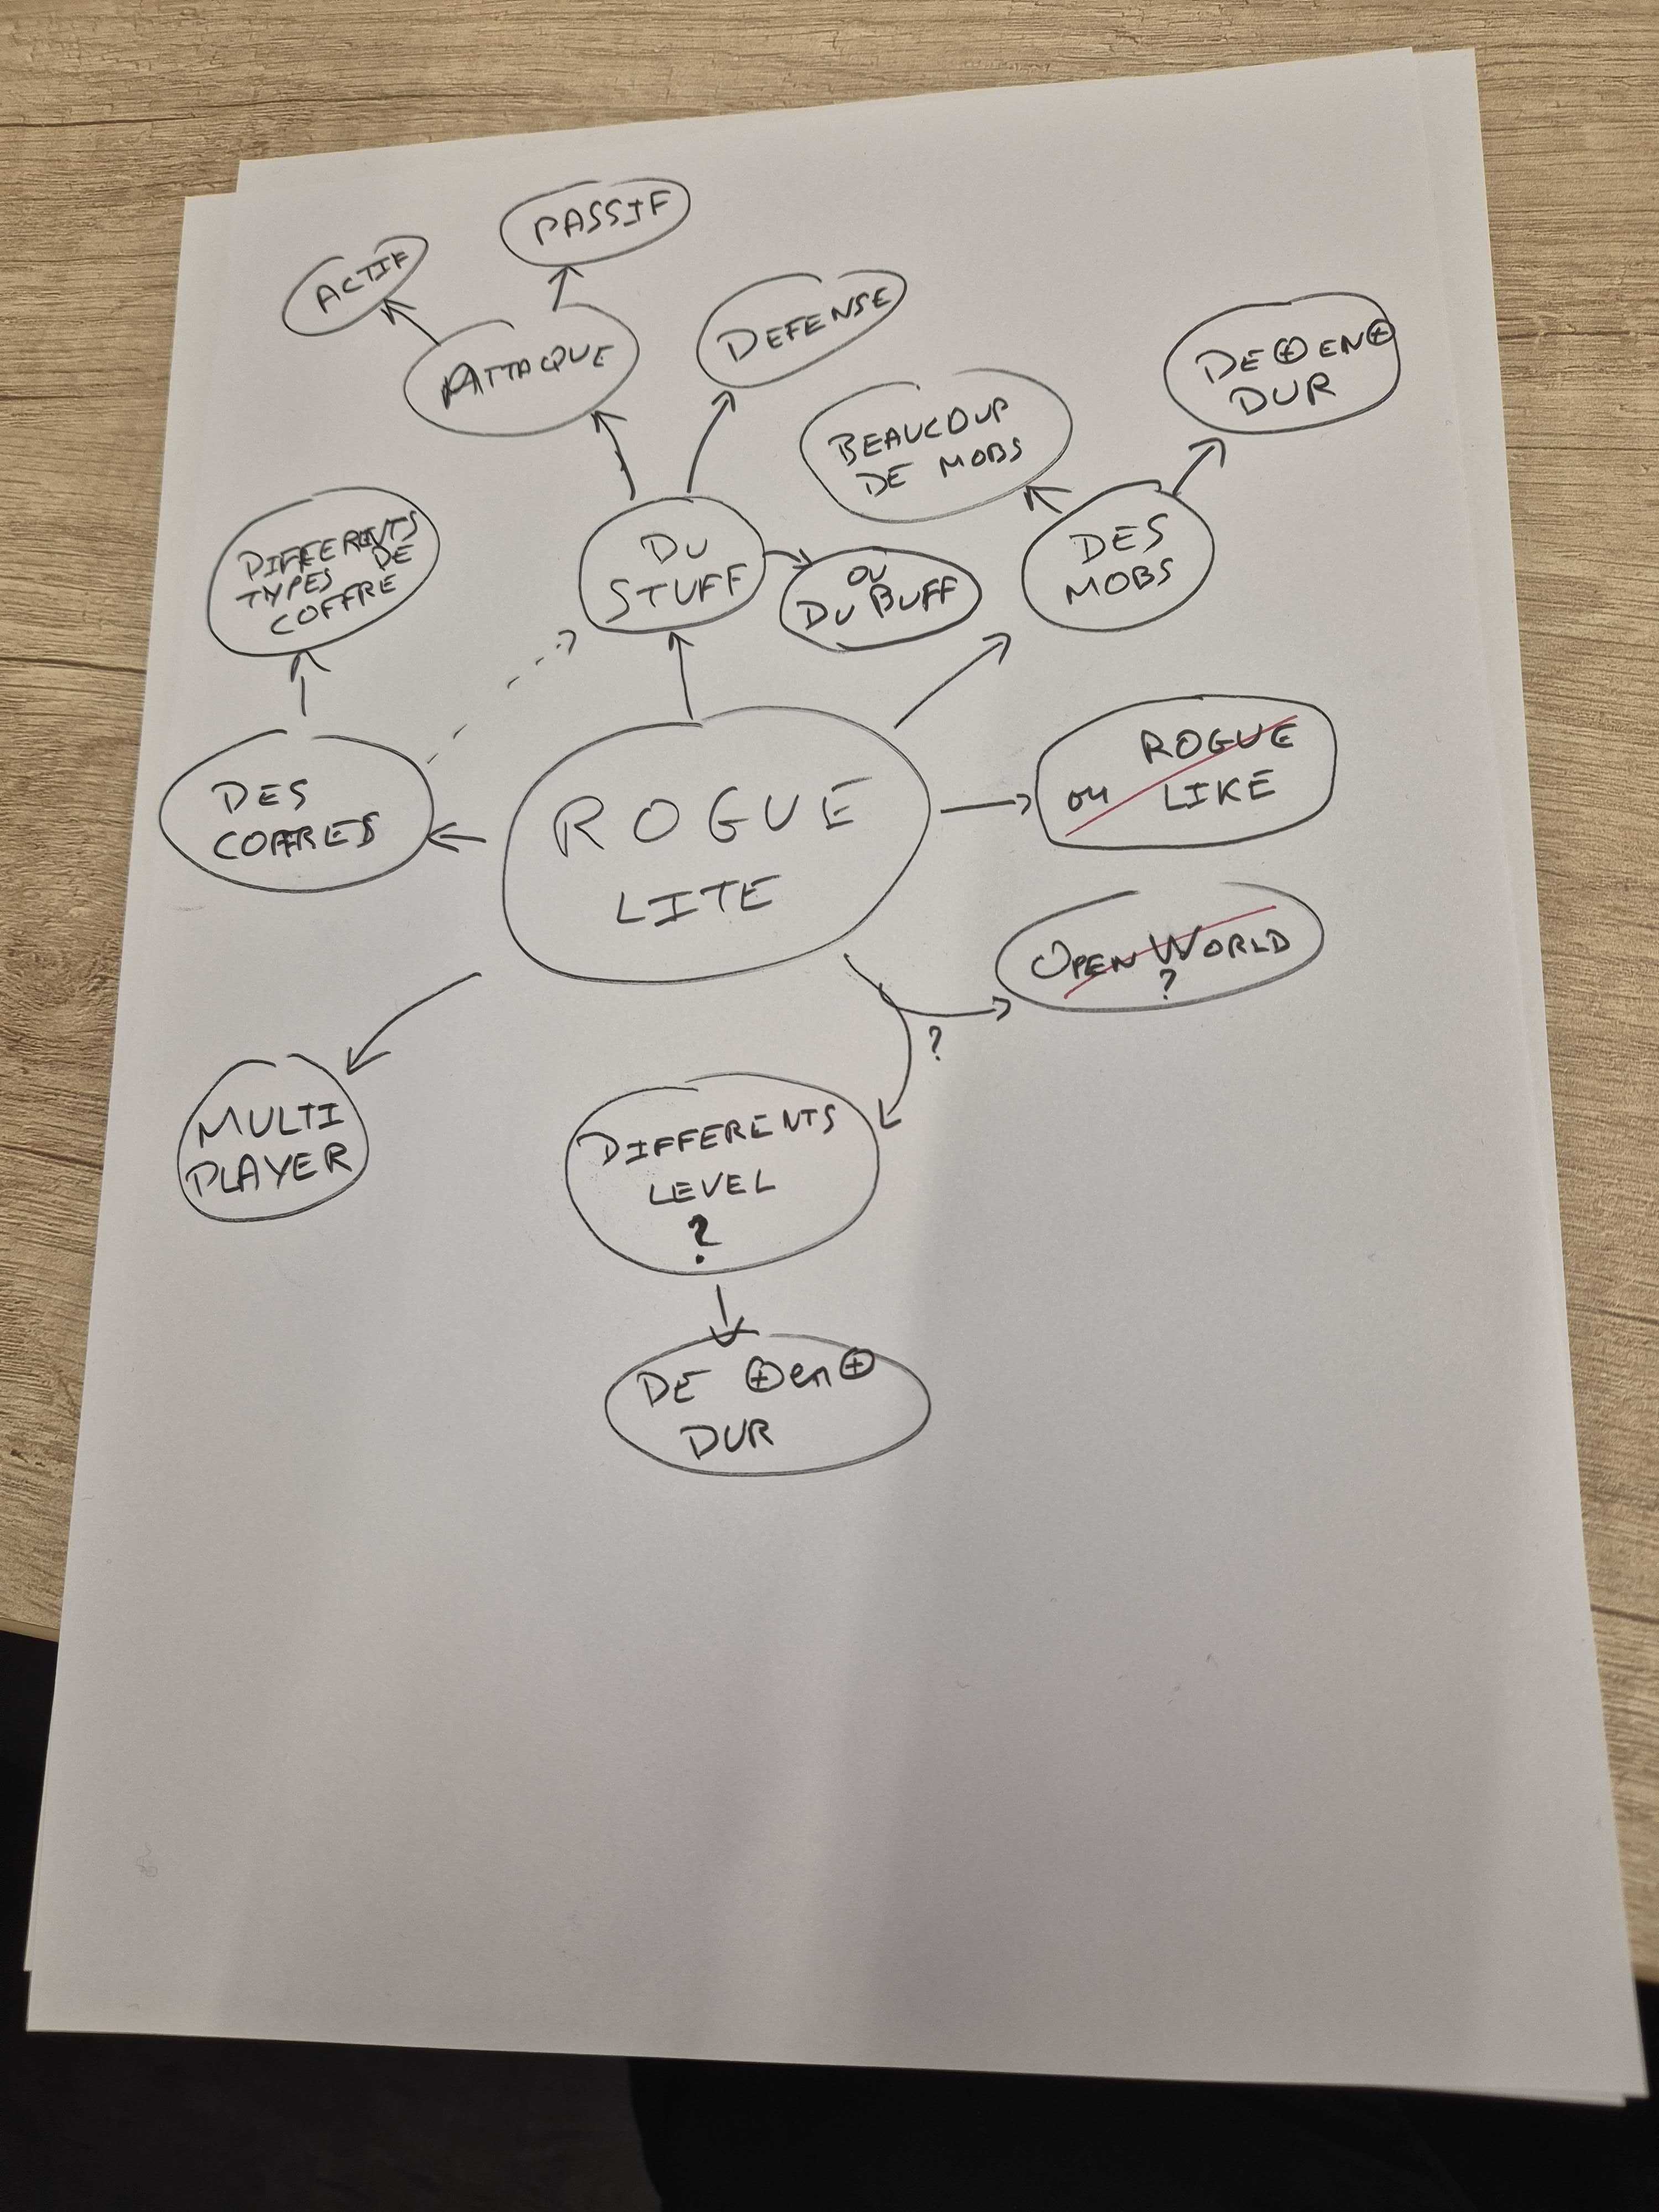 PASSIF
ACTIF
ATTAQUE
DEFENSE
DE ⊕ EN ⊕
DUR
BEAUCOUP
DE MOBS
DIFFERENTS
TYPES DE
COFFRE
DU
STUFF
OU
DU BUFF
DES
MOBS
DES
COFFRES
ROGUE
LITE
ROGUE
ou LIKE
OPEN WORLD
?
?
MULTI
PLAYER
DIFFERENTS
LEVEL
?
DE ⊕ en ⊕
DUR